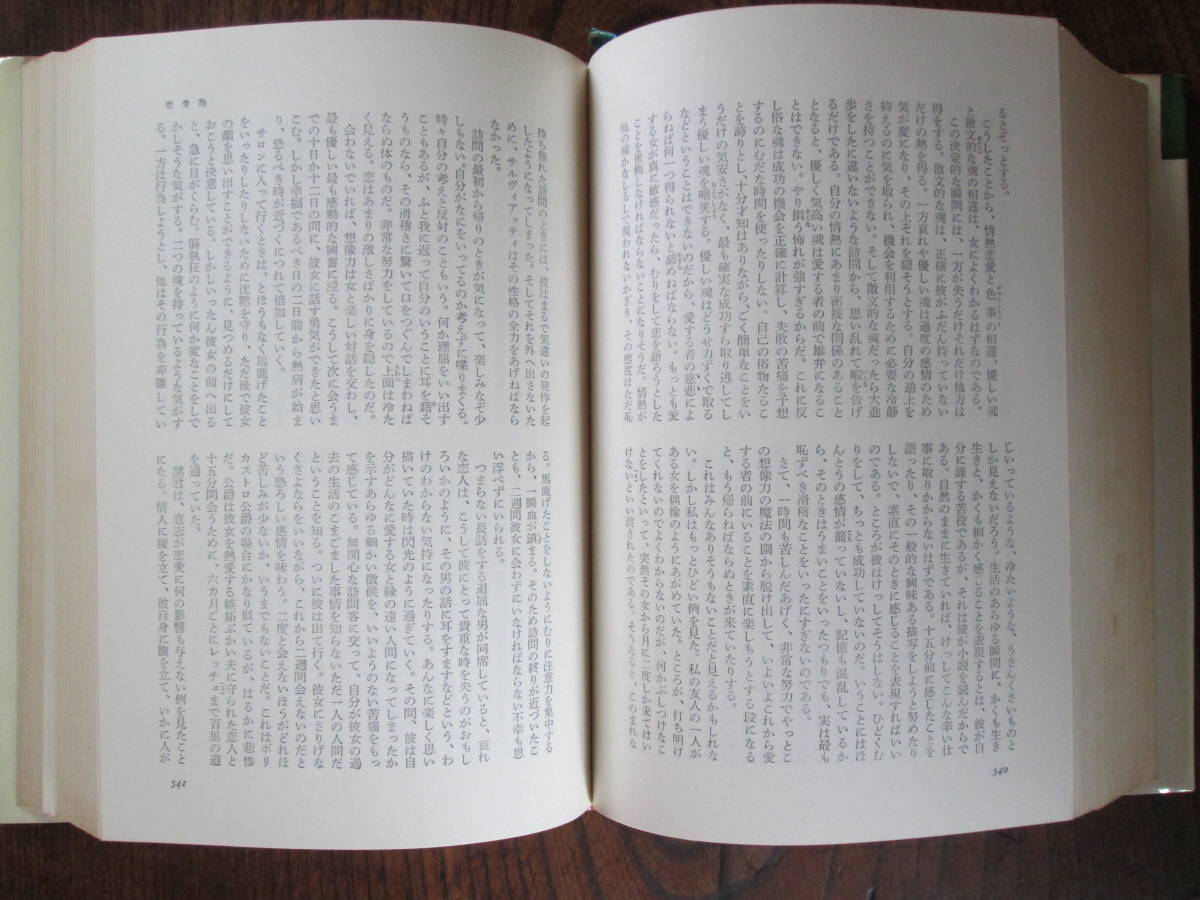 るとぞっとする。
こうしたことから、情熱恋愛と色事の相違、優しい魂
と散文的な魂の相違は、女によくわかるはずなのである。
この決定的な瞬間には、一方が失うだけそれだけ他方は
得をする。散文的な魂は、正確に彼がふだん持っていない
だけの熱を得る。一方哀れや優しい魂は過度の感情のため
気が変になり、その上それを隠そうとする。自分の逆上を
抑えるのに気を取られ、機会を利用するために必要な冷静
さを持つことができない。そして散文的な魂だったら大進
歩をしたに違いないような訪問から、思い乱れて暇を告げ
るだけである。自分の情熱にあまり密接な関係のあること
となると、優しく気高い魂は愛する者の前で雄弁になるこ
とはできない。やり損う怖れが強すぎるからだ。これに反
し俗な魂は成功の機会を正確に計算し、失敗の苦痛を予想
するのにむだな時間を使ったりしない。自己の俗物たるこ
とを誇りとし、十分才知はありながら、ごく簡単なことをい
うだけの気安さがなく、最も確実な成功すら取り逃してし
まう優しい魂を嘲笑する。優しい魂はどうせ力ずくで取る
などということはできないのだから、愛する者の慈悲によ
らねば何一つ得られないと諦めねばならない。もっとも愛
する女が真に敏感だったら、むりをして恋を語ろうとした
ことを後悔しなければならないことになりそうだ。
じいっているような、冷たいような、うさんくさいものと
しか見えないだろう。生活のあらゆる瞬間に、かくも生き
生きと、かくも細かく感じることを表現するとは、彼が自
分に課する苦役であるが、それは彼が小説を読んだからで
ある。自然のままに生きていれば、けっしてこんな辛い仕
事に取りかからないはずである。十五分前に感じたことを
語ったり、その一般的な興味ある描写をしようと努めたり
しないで、素直にそのときに感じることを表現すればいい
のである。ところが彼はけっしてそうはしない。ひどくむ
りをして、ちっとも成功していないのだ。いうことにはほ
んとうの感情が籠っていないし、記憶も混乱しているか
ら、そのときはうまいことをいったつもりでも、実は最も
恥ずべき滑稽なことをいったにすぎないのである。
さて、一時間も苦しんだあげく、非常な努力でやっとこ
の想像力の魔法の園から脱け出して、いよいよこれから愛
する者の前にいることを素直に楽しもうとする段になる
と、もう帰らねばならぬときが来ていたりする。
これはみんなありそうもないことだと見えるかもしれな
い。しかし私はもっとひどい例を見た。私の友人の一人が
ある女を偶像のようにあがめていた。ところが、打ち明け
てくれないのでよくわからないのだが、何かぶしつけなこ
とをしたといって、突然その女から月に二度しか来てはい
けないといい渡されたのである。
340
恋愛論
待ち焦れた訪問のときには、彼はまるで気違いの発作を起
したようになってしまった。そしてそれを外へ出さないた
めに、サルヴィアッティはその性格の全力をあげねばなら
なかった。
訪問の最初から帰りのときが気になって、楽しみなぞ少
しもない。自分がなにをいってるのか考えずに喋りまくる。
時々自分の考えと反対のこともいう。何か理屈をいい出す
こともあるが、ふと我に返って自分のいうことに耳を藉そ
うものなら、その滑稽さに驚いて口をつぐんでしまわねば
ならぬ体のものだ。非常な努力をしているので上面は冷た
く見える。恋はあまりの激しさばかりに身を隠したのだ。
会わないでいれば、想像力は女と楽しい対話を交わし、
最も優しい最も感動的な興奮に浸る。こうして次に会うま
での十日か十二日の間に、彼女に話す勇気ができたと思い
こむ。しかし幸福であるべき日の二日前から熱病が始ま
り、恐るべき時が近づくにつれて倍加していく。
サロンに入って行くときは、とほうもなく馬鹿げたこと
をいったりしたりしないために沈黙を守り、ただ後で彼女
の顔を思い出すことができるように、見つめるだけにして
おこうと決意している。しかしいったん彼女の前へ出る
と、急に目がくらむ。偏執狂のように何か変なことをし
かしそうな気がする。二つの魂を持っているような気がす
る。一方は行為しようとし、他はその行為を非難してい
る。馬鹿げたことをしないようにむりに注意力を集中する
から、一瞬血が鎮まる。そのため訪問の終りが近づいたこ
とも、二週間彼女に会わずにいなければならない不幸も思
い浮べずにいられる。
つまらない長話をする退屈な男が同席していると、哀れ
な恋人は、こうして彼にとって貴重な時を失うのがおもし
ろいかのように、その男の話に耳をすますなどという、わ
けのわからない気持になったりする。あんなに楽しく思い
描いていた時は閃光のように過ぎていく。その間、彼は自
分がどんなに愛する女と縁の遠い人間になってしまったか
を示すあらゆる細かい徴候を、いいようのない苦痛をもっ
て感じている。無関心な訪問客に交って、自分が彼女の過
去の生活のこまごました事情を知らないただ一人の人間だ
ということを知る。ついに彼は出て行く。彼女にさりげな
くさよならをいいながら、これから二週間会えないのだと
いう恐ろしい感情を味わう。二度と会えないほうがどれほ
ど苦しみが少ないか、いうまでもないことだ。これはポリ
カストロ公爵の場合にかなり似ているが、はるかに悲惨
だ。公爵は彼女を熱愛する嫉妬ぶかい夫に守られた恋人と
十五分間会うために、六カ月ごとにレッチェまで百里の道
を通っていた。
諸君は、意志が恋愛に何の影響も与えない例を見たこと
になる。情人に腹を立て、彼自身に腹を立て、いかに人が
342